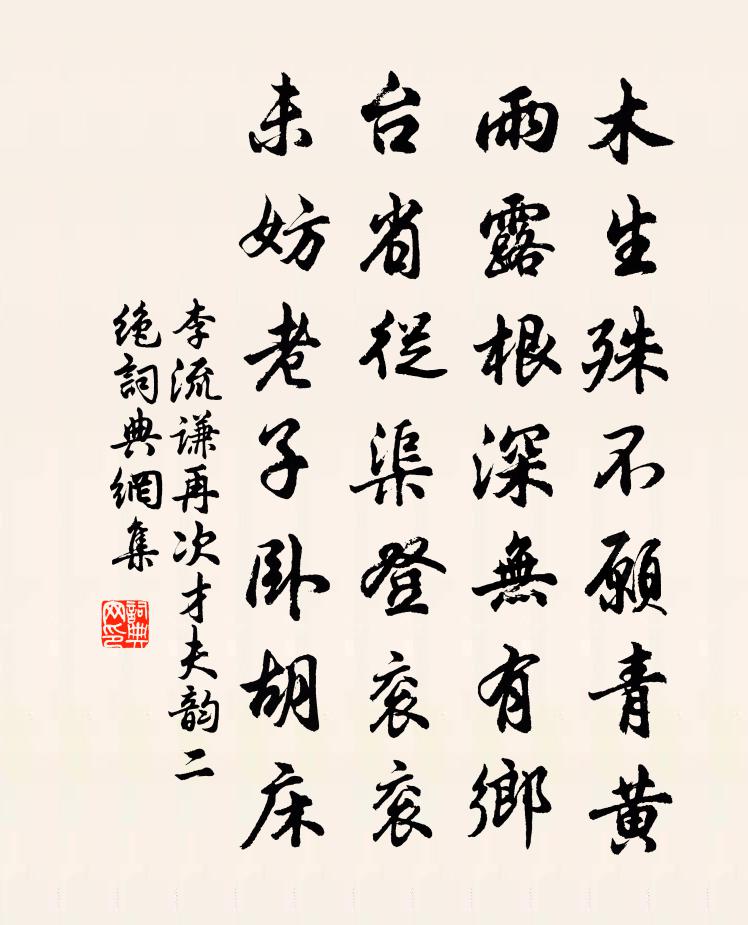 木生殊不愿青黄
雨露根深無有鄉
台省從渠登衮衮
未妨老子卧胡床
李流谦再次才夫韵二
絶詞典網集
詞典网印